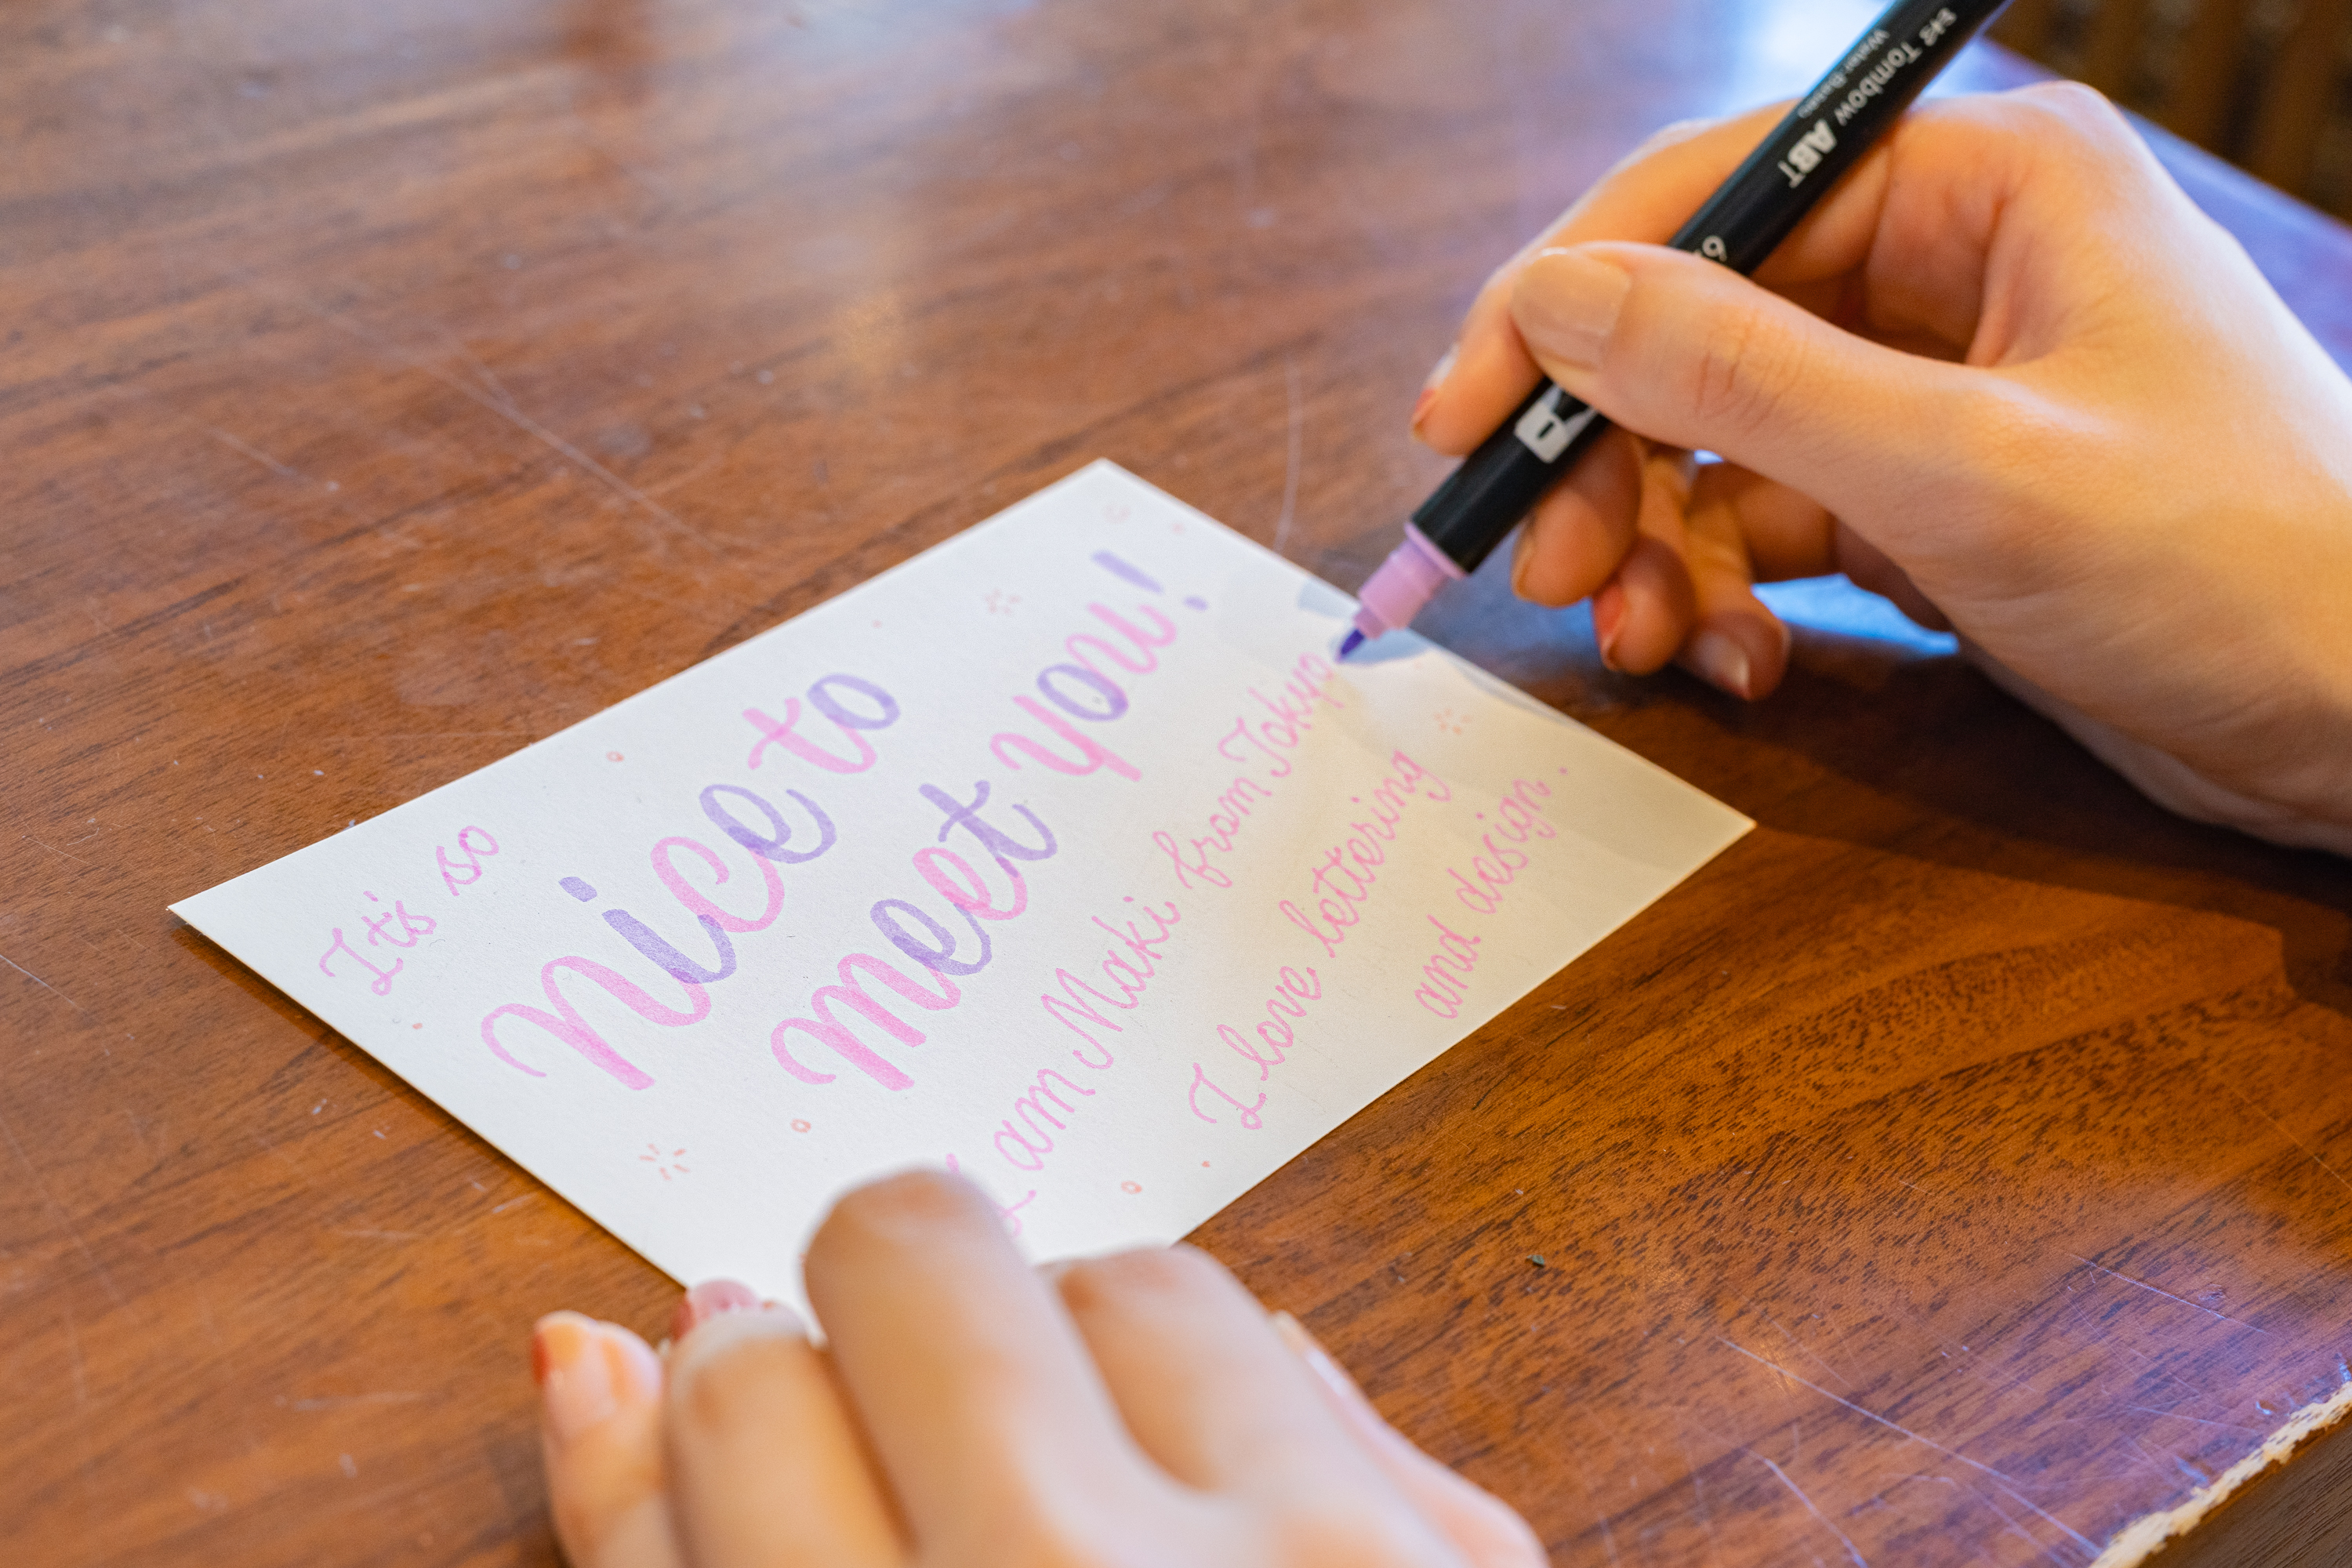 It's so
nice to
meet you!
I am Maki from Tokyo
I love lettering
and design.
Tombow ABT